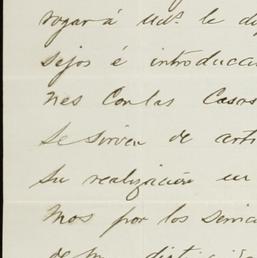 rogar á Uds. le d
sejos é introducci
nes con las Casas
se sirven de arti
su realización en
mos por los servic
de su disti